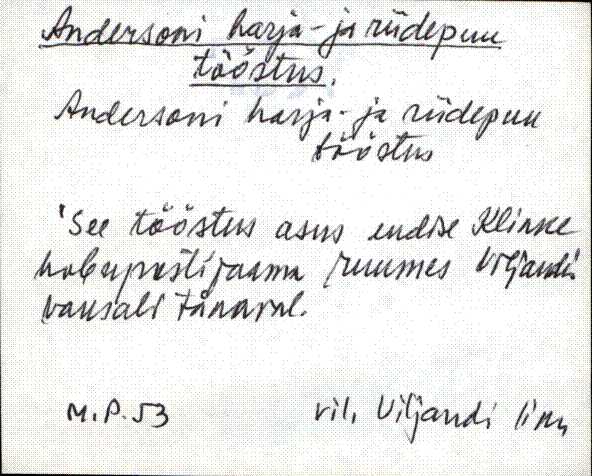 Andersoni harja- ja riidepuu
tööstus.
Andersoni harja- ja riidepuu
tööstus
'See tööstus asus endise Klinke
hobupostijaama ruumes Viljandi
vaksali tänaval.
M.P. 53 vil, Viljandi linn